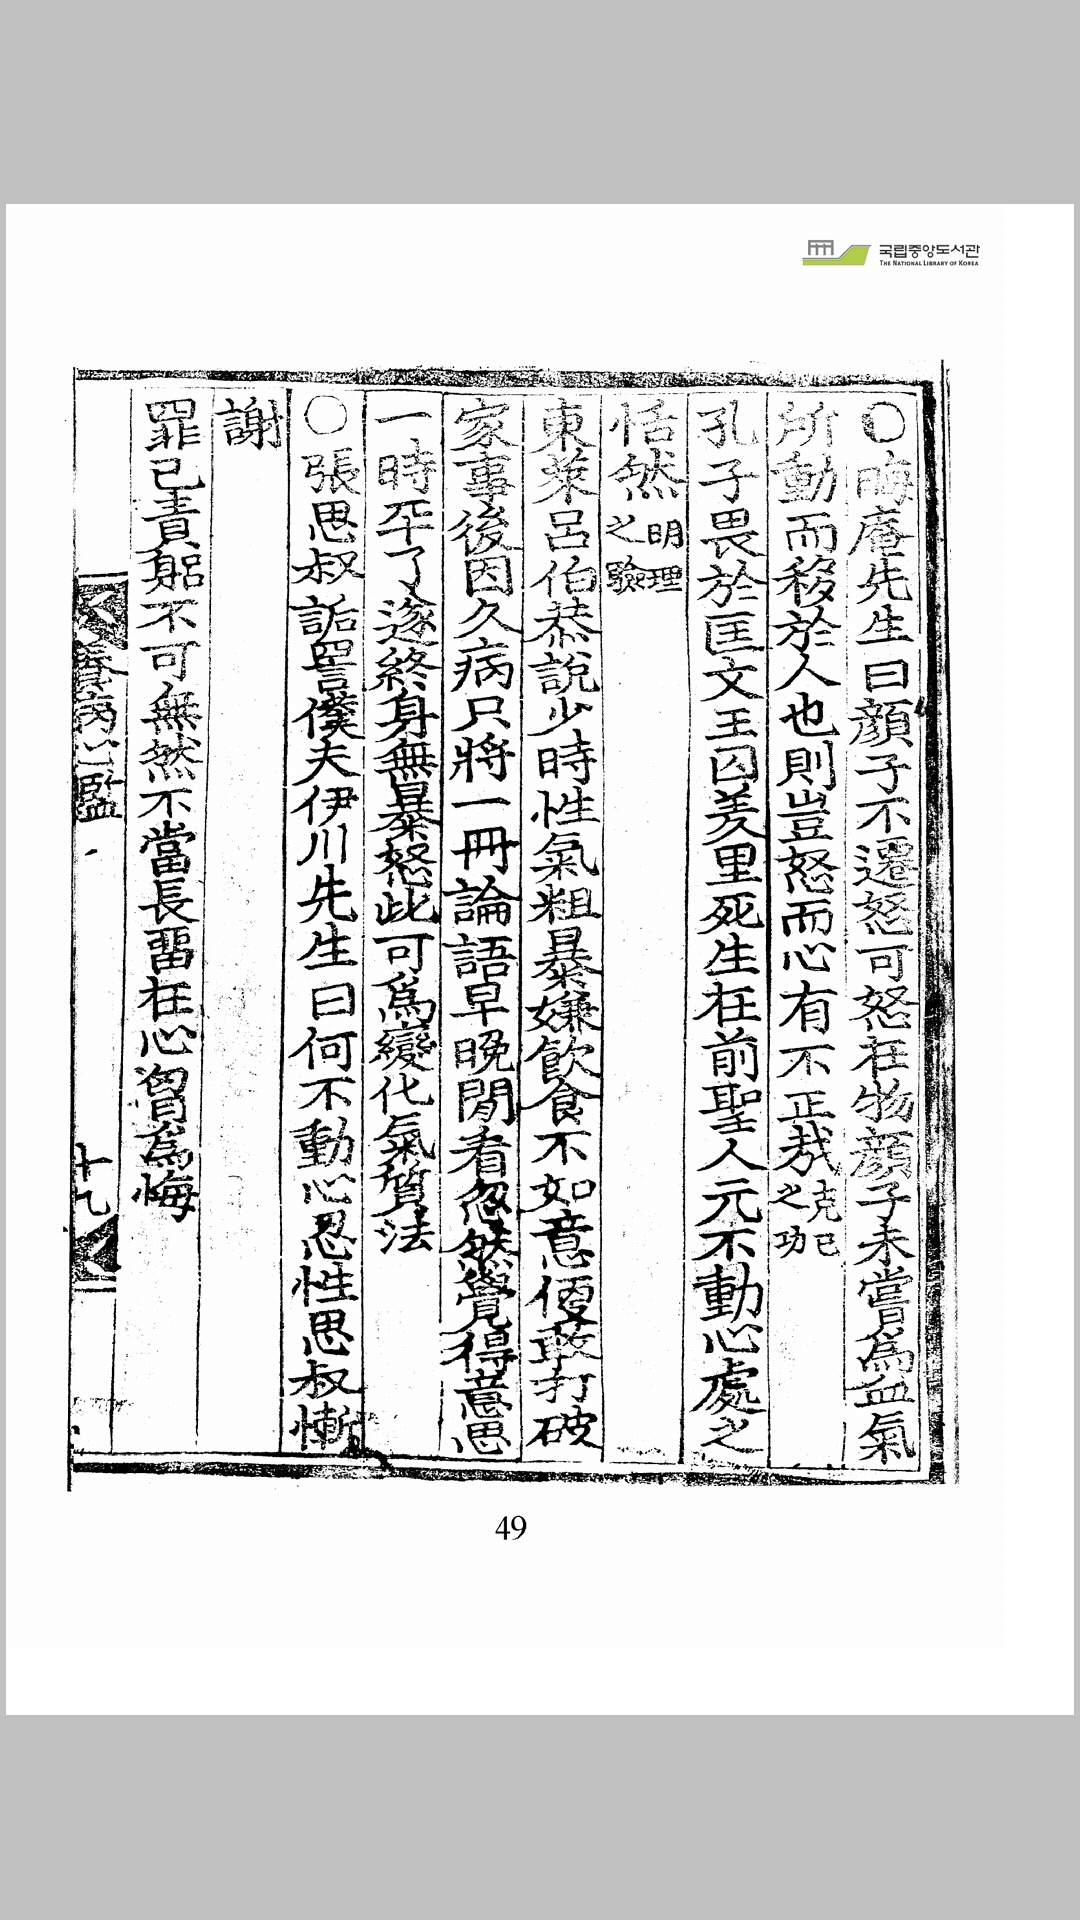 국립중앙도서관
THE NATIONAL LIBRARY OF KOREA
○晦庵先生曰顔子不遷怒可怒在物顔子未嘗爲血氣
所動而移於人也則豈怒而心有不正哉克己之功
孔子畏於匡文王囚羑里死生在前聖人元不動心處之
恬然明理之驗
東萊呂伯恭說少時性氣粗暴嫌飮食不如意便敢打破
家事後因久病只將一冊論語早晚閒看忽然覺得意思
一時平了遂終身無暴怒此可爲變化氣質法
○張思叔詬詈僕夫伊川先生曰何不動心忍性思叔慚
謝
罪己責躬不可無然不當長留在心胷爲悔
養病心鑑
十九
49